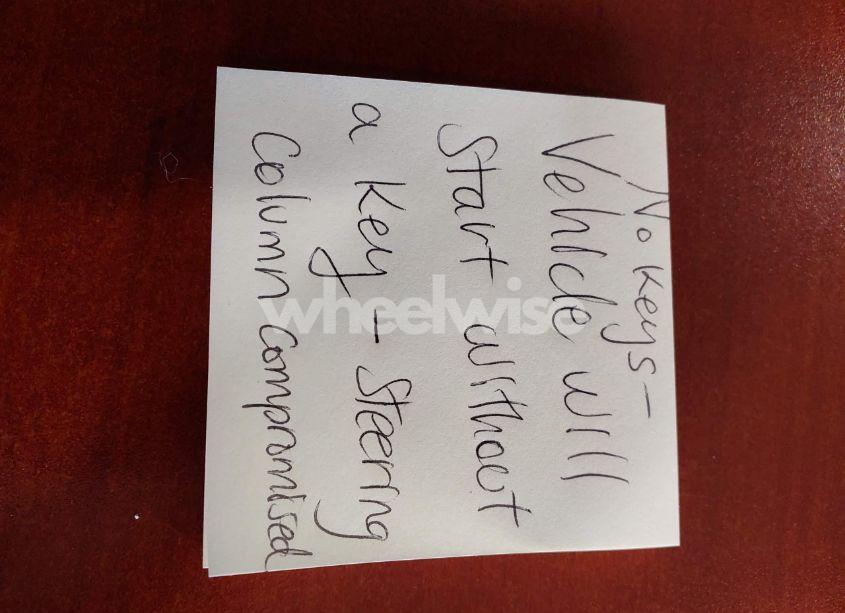 No keys-
Vehicle will
start without
a key - steering
column compromised
wheelwise